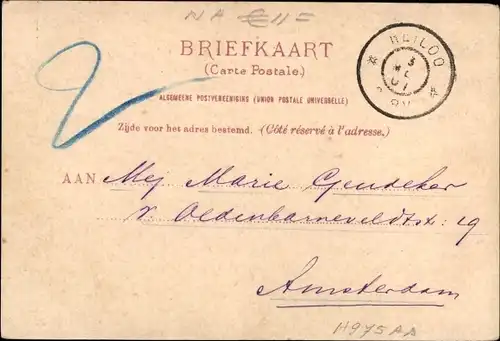 NA €11=
BRIEFKAART
(Carte Postale.)
ALGEMEENE POSTVEREENIGING (UNION POSTALE UNIVERSELLE)
Zijde voor het adres bestemd. (Côté réservé à l'adresse.)
HEILOO
2
AAN Mej Marie Gendeker
v. Oldenbarneveldtstr: 19
Amsterdam
H975AA